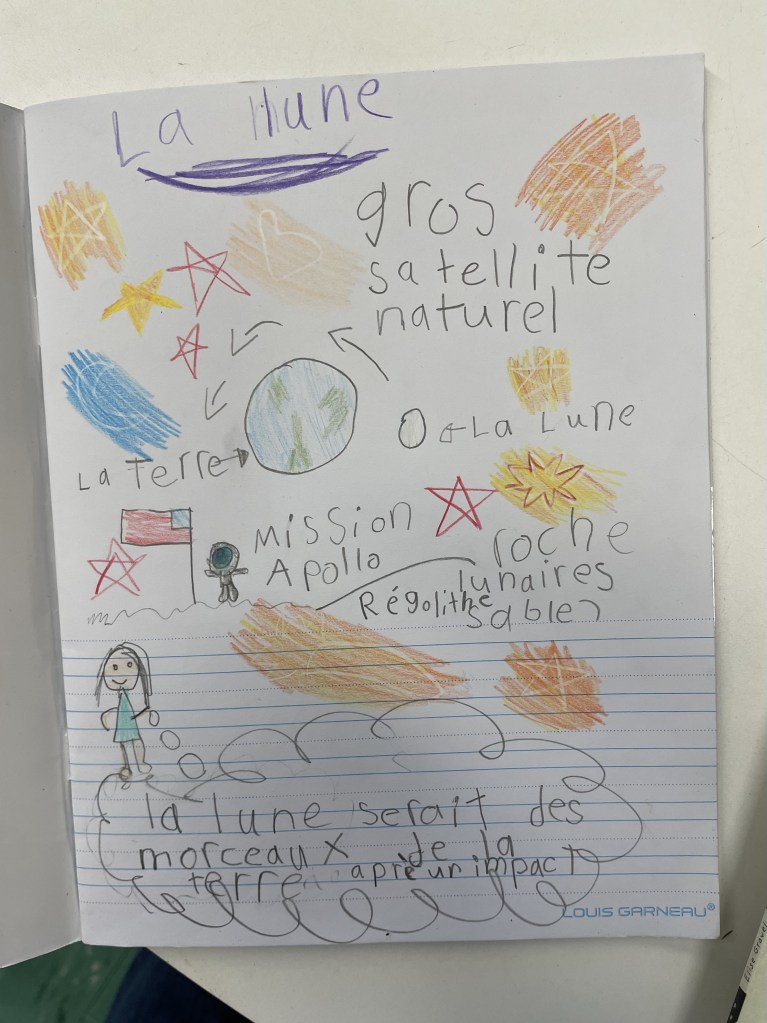 La lune
gros
satellite
naturel
La Lune
La Terre
Mission
Apollo
roche
lunaires
Régolithe
sable
la lune serait des
morceaux de la
terre aprè un impact
LOUIS GARNEAU®
Elise Gravel